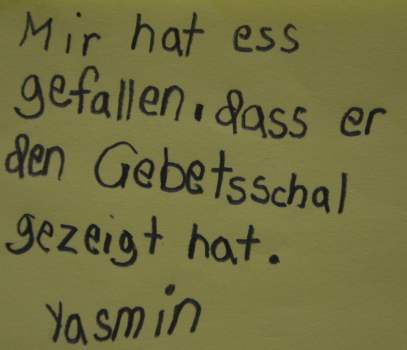 Mir hat ess
gefallen, dass er
den Gebetsschal
gezeigt hat.
Yasmin